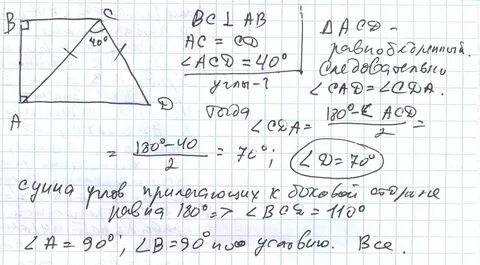 B C 40° A D
BC ⊥ AB
AC = CD
∠ACD = 40°
углы - ?
Δ ACD -
равнобедренный.
Следовательно
∠CAD = ∠CDA.
Тогда
∠CDA = 180° - ∠ACD / 2 =
= 180° - 40 / 2 = 70°; ∠D = 70°
сумма углов прилегающих к боковой стороне
равна 180° => ∠BCD = 110°
∠A = 90°; ∠B = 90° по условию. Все.